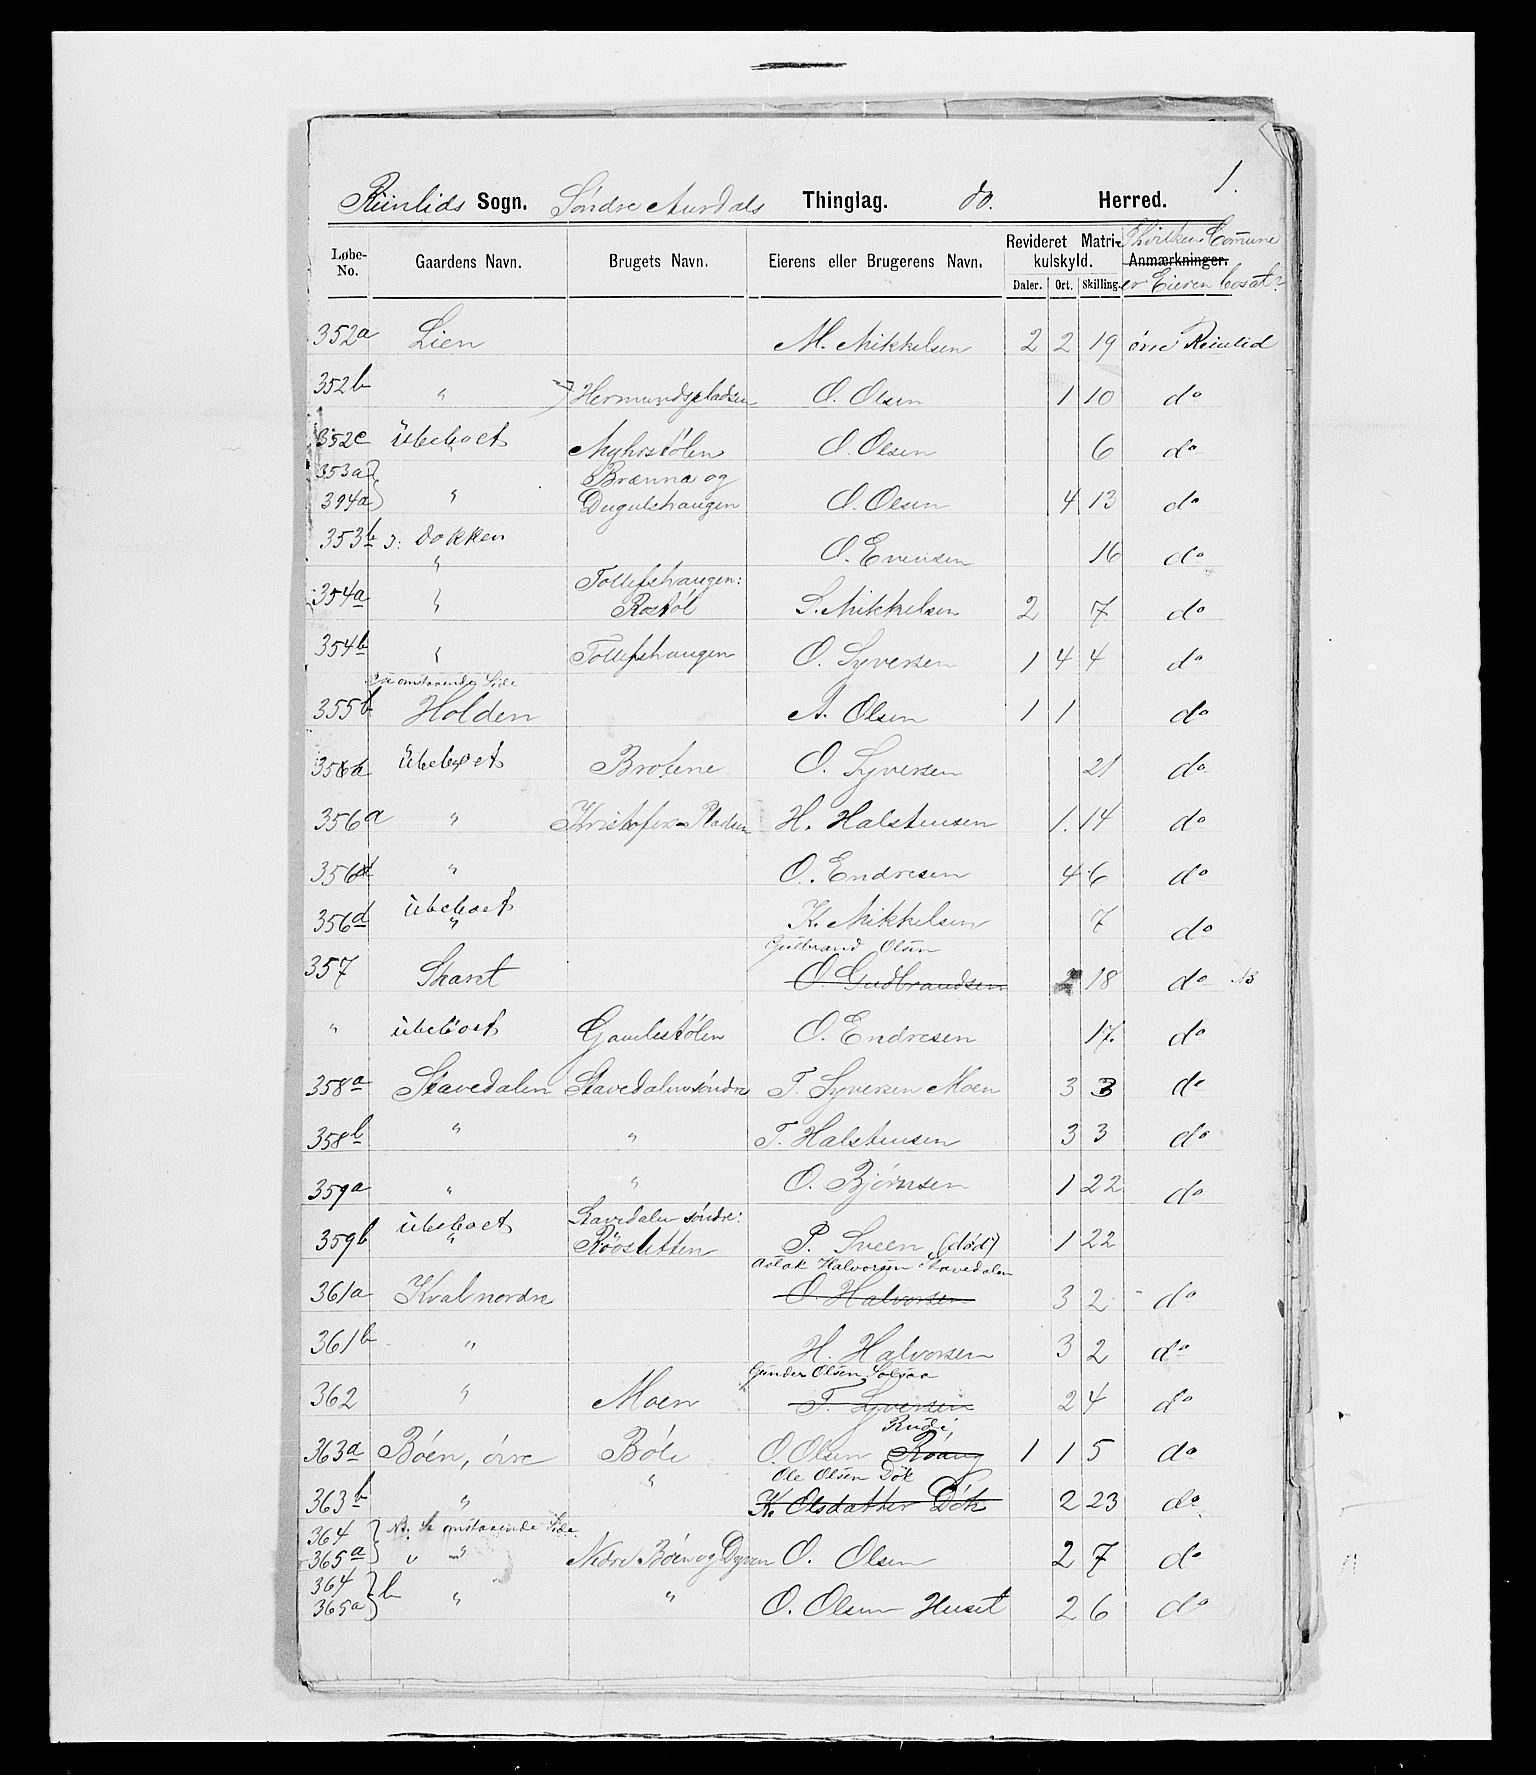 1.
Reinlids Sogn. Søndre Aurdals Thinglag. do. Herred.
Løbe-No. Gaardens Navn. Brugets Navn. Eierens eller Brugerens Navn. Revideret Matrikulskyld. Daler. Ort. Skilling. Anmærkninger. I hvilken Comune er Eieren bosat?
352a Lien M. Mikkelsen 2 2 19 øvre Reinlid
352b " Hermundspladsen O. Olsen 1 10 do
352c Ubeboet " Myhrstølen O. Olsen 6 do
353a
394a " Brænna og Dugulshaugen O. Olsen 4 13 do
353b Dokken " O. Evensen 16 do
354a " Tollefshaugen: Rostøl S. Mikkelsen 2 7 do
354b " Tollefshaugen O. Syversen 1 4 4 do
Se omstaaende Side
355b Holden A. Olsen 1 1 do
356a Ubeboet Brotene O. Syversen 21 do
356a " Kristofers-Pladsen H. Halstensen 1. 14 do
356 " O. Endresen 4 6 do
356d Ubeboet " K. Mikkelsen 7 do
Gulbrand Olsen
357 Skaret O. Gudbrandsen 18 do
" Ubeboet Gamlestølen O. Endresen 17. do
358a Stavedalen Stavedalen søndre T. Syversen Moen 3 3 do
358b " " T. Halstensen 3 3 do
359a " " O. Bjørnsen 1 22 do
359b Ubeboet " Stavedalen søndre: Røosletten P. Sveen (død) 1 22
Aslak Halvorsen Stavedalen
361a Kval nordre O. Halvorsen 3 2 do
361b " H. Halvorsen 3 2 do
Gunder Olsen
362 " Moen T. Syversen 2 4 do
Rudi,
363a Bøen, øvre Bøle O. Olsen 1 1 5 do
Ole Olsen Dök
363b " " K. Olsdatter Dök 2 23 do
NB. Se omstaaende Side
364
365a " " Nedre Bøen og Dyren O. Olsen 2 7 do
364
365a b " " O. Olsen Huset 2 6 do